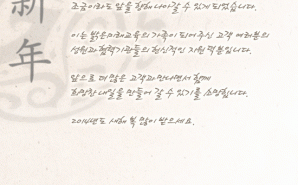 新年
조금이라도 앞을 향해 나아갈 수 있게 되었습니다.
이는 밝은미래교육의 가족이 되어주신 고객 여러분의
성원과 협력기관들의 헌신적인 지원 덕분입니다.
앞으로 더 많은 고객과 만나면서 함께
희망찬 내일을 만들어 갈 수 있기를 소망합니다.
2014년도 새해 복 많이 받으세요.